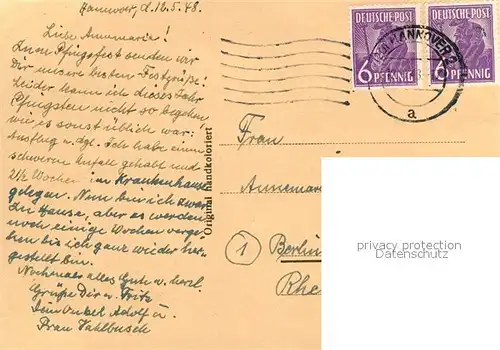 Hannover, d. 12.5.48.
Liebe Annemarie!
Zum Pfingstfest senden wir
Dir unsere besten Festgrüße!
Leider kann ich dieses Jahr
Pfingsten nicht so begehen,
wie es sonst üblich war:
Ausflug u. dgl. Ich habe einen
schweren Unfall gehabt und
2½ Wochen im Krankenhause
gelegen. Nun bin ich zwar
zu Hause, aber es werden
noch einige Wochen verge-
hen bis ich ganz wieder her-
gestellt bin.
Nochmals alles Gute u. herzl.
Grüße Dir u. Fritz
Dein Onkel Adolf u.
Frau Vahlbusch
Original handkoloriert
DEUTSCHE POST
6 PFENNIG
DEUTSCHE POST
6 PFENNIG
HANNOVER 2
a
Frau
Annemar
1 Berlin
Rhe
privacy protection
Datenschutz